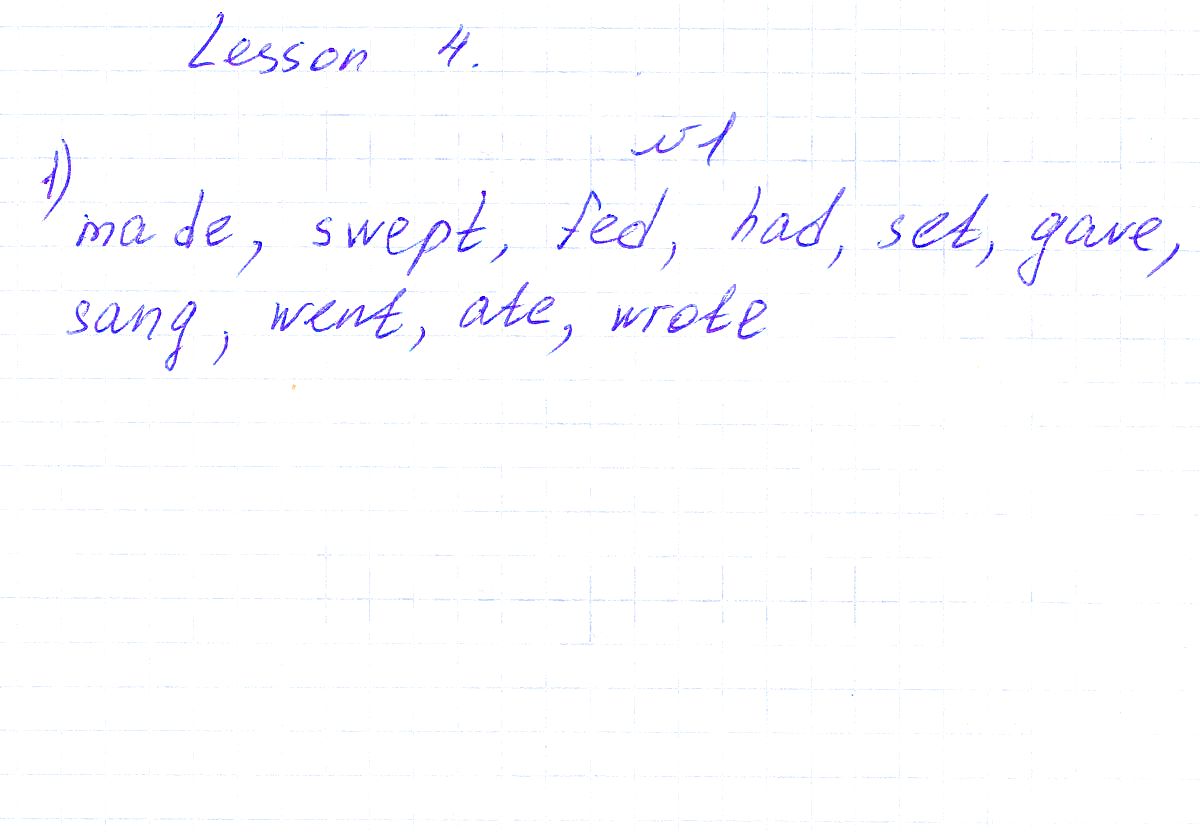 Lesson 4.
№1
1)
made, swept, fed, had, set, gave,
sang, went, ate, wrote